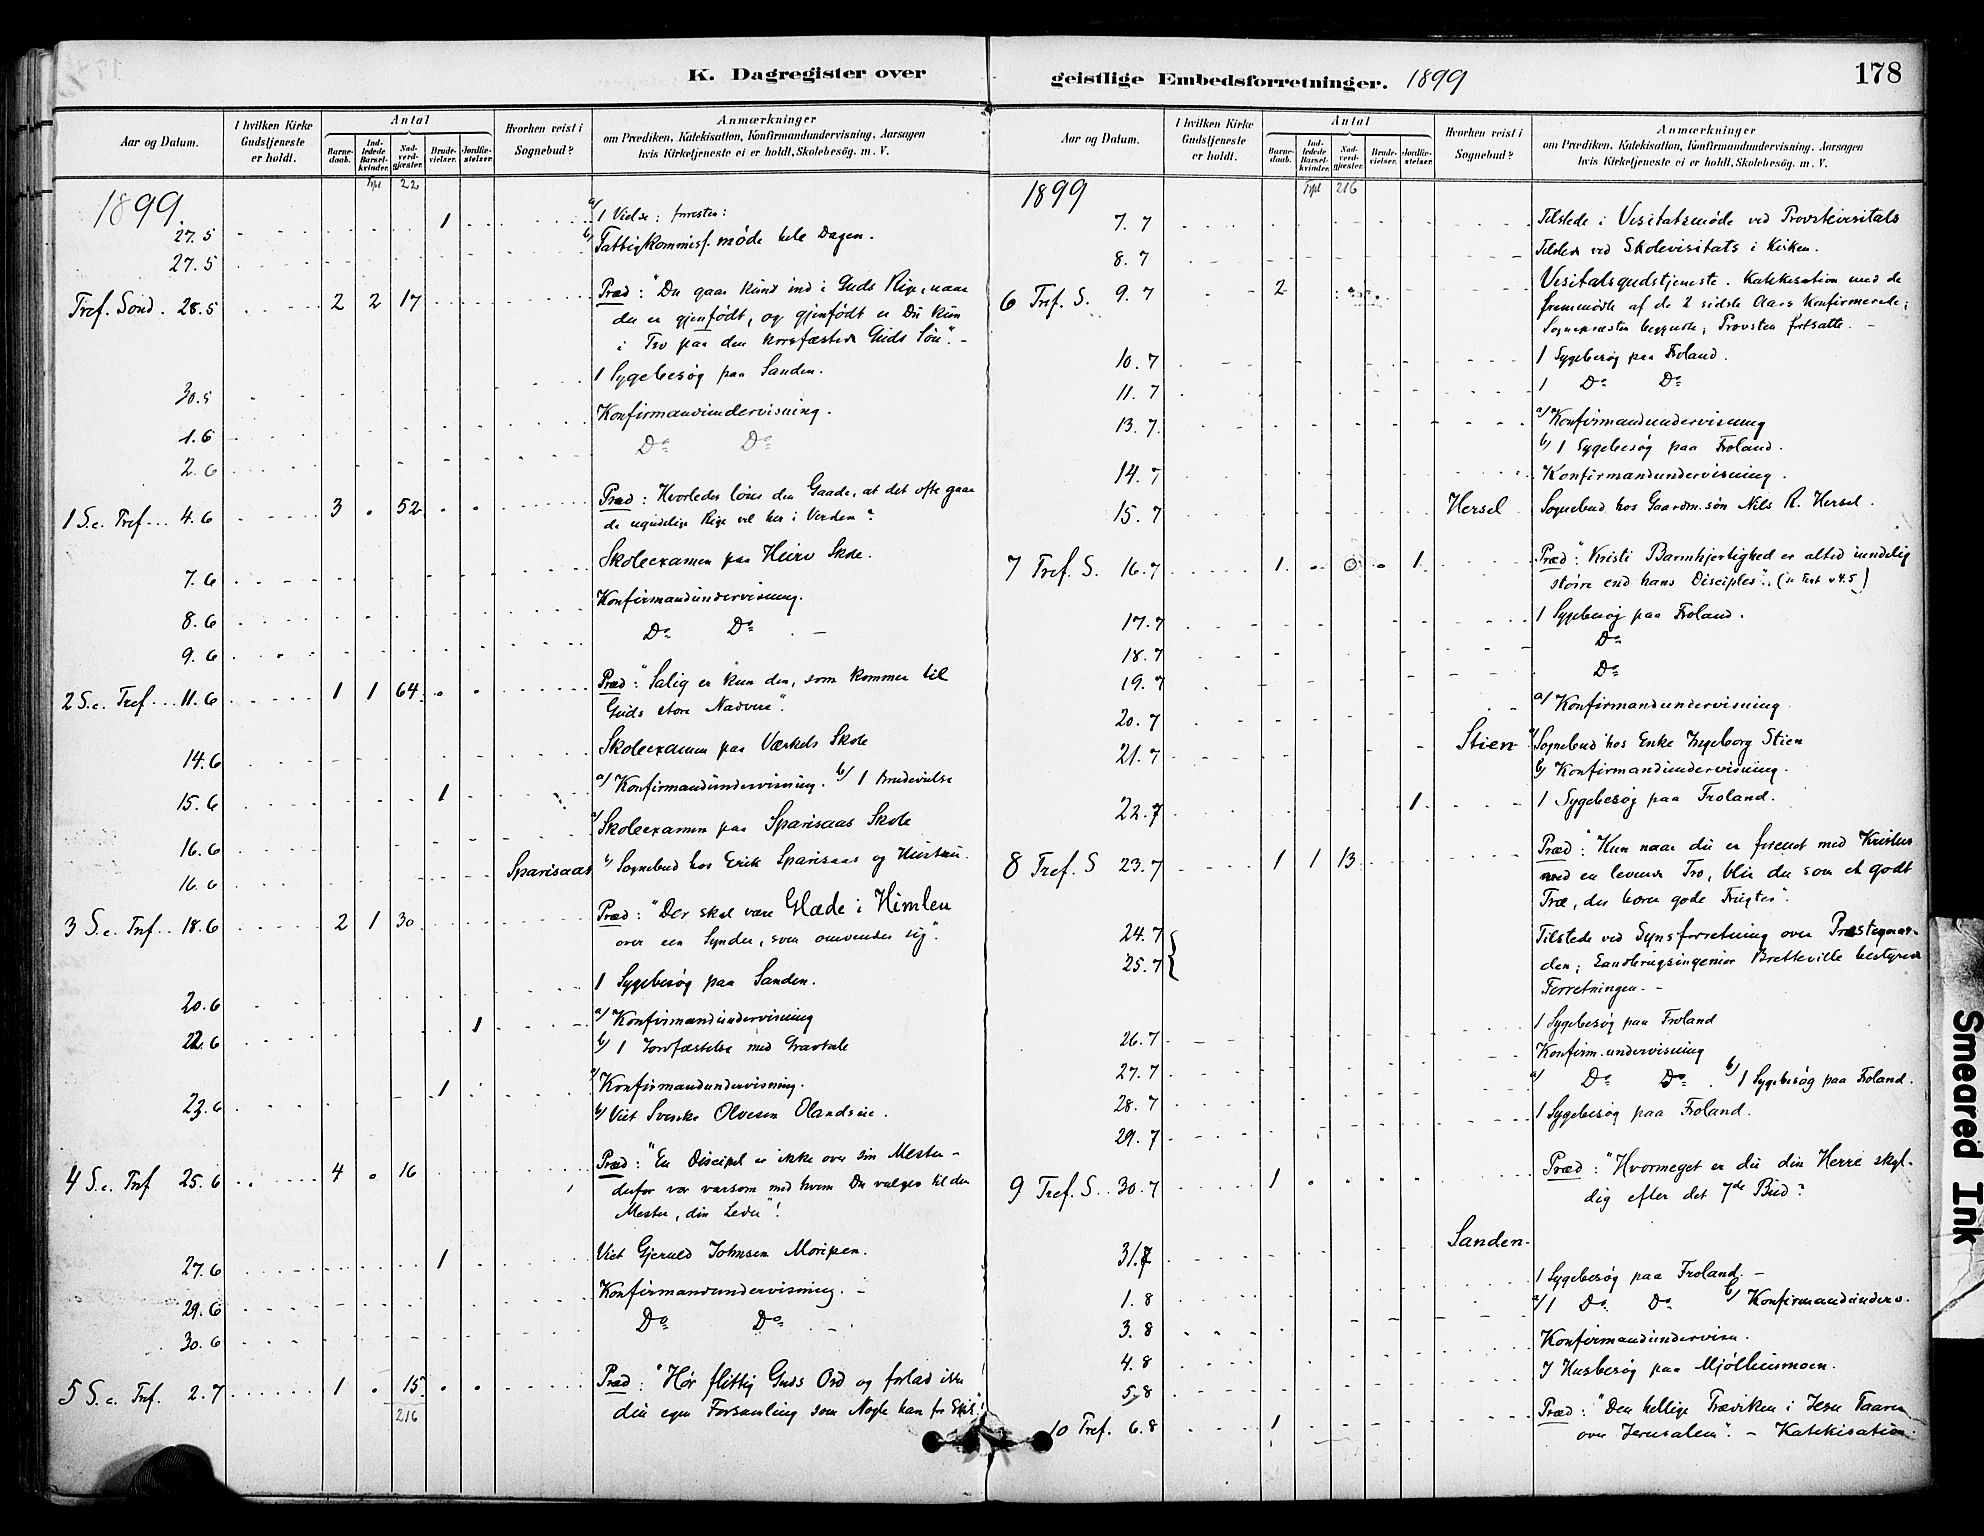 K. Dagregister over
Aar og Datum.
I hvilken Kirke Gudstjeneste er holdt.
Antal
Barnedaab.
Indledede Barselkvinder.
Nadverdgjæster.
Brudevielser.
Jordfæstelser.
Hvorhen reist i Sognebud?
Anmærkninger
om Prædiken, Katekisation, Konfirmandundervisning, Aarsagen
hvis Kirketjeneste ei er holdt, Skolebesøg. m. V.
22
1899.
27.5 1 a/ 1 Vielse:
27.5 b/ Fattigkommiss. møde hele Dagen.
Tref. Sønd. 28.5 2 2 17 Præd: "Du gaar kund ind i Guds Rige, naar
du er gjenfødt, og gjenfødt er Du kun
i Tro paa den korsfæstede Guds Søn". -
30.5 1 Sygebesøg paa Sanden.
1.6 Konfirmandundervisning.
2.6 Do Do
1 S.e. Tref. 4.6 3 52 Præd: Hvorledes løses den Gaade, at det ofte gaar
de ugudelige vel her i Verden?
7.6 Skoleexamen paa Heiro Skole.
8.6 Konfirmandundervisning.
9.6 Do Do
2 S.e. Tref. 11.6 1 1 64 Præd: "Salig er kun den, som kommer til
Guds store Nadvere".
14.6 Skoleexamen paa Værkets Skole
15.6 1 a/ Konfirmandundervisning. b/ 1 Brudevielse
16.6 a/ Skoleexamen paa Sparisaas Skole
16.6 Sparisaas b/ Sognebud hos Erik Sparisaas og Hustru.
3 S.e. Tref. 18.6 2 1 30 Præd: "Der skal være Glæde i Himlen
over een Synder, som omvender sig".
20.6 1 Sygebesøg paa Sanden.
22.6 1 a/ Konfirmandundervisning
b/ 1 Jordfæstelse med Gravtale
23.6 1 a/ Konfirmandundervisning.
b/ Viet Olvesen
4 S.e. Tref 25.6 4 16 Præd: "En Discipel er ikke over sin Mester -
derfor vær varsom med hvem Du vælger til din
Mester, din Leder"!
27.6 1 Viet Gjeruld Johnsen Moripen.
29.6 Konfirmandundervisning. -
30.6 Do Do
5 S.e. Tref. 2.7 1 15 Præd: "Hør flittig Guds Ord og forlad ikke
din egen Forsamling som Nogle har for Skik!"
216
geistlige Embedsforretninger. 1899
178
Aar og Datum.
I hvilken Kirke Gudstjeneste er holdt.
Antal
Barnedaab.
Indledede Barselkvinder.
Nadverdgjæster.
Brudevielser.
Jordfæstelser.
Hvorhen reist i Sognebud?
Anmærkninger
om Prædiken, Katekisation, Konfirmandundervisning, Aarsagen
hvis Kirketjeneste ei er holdt, Skolebesøg. m. V.
216
1899
7.7 Tilstede i Visitatsmøde ved Provstevisitats
8.7 Tilstede ved Skolevisitats i Kirken.
6 Tref. S. 9.7 2 Visitatsgudstjeneste. Katekisation med de
fremmødte af de 2 sidste Aars Konfirmerede;
Sognepræsten begyndte; Provsten fortsatte. -
10.7 1 Sygebesøg paa Froland.
11.7 1 Do Do
13.7 a/ Konfirmandundervisning
b/ 1 Sygebesøg paa Froland.
14.7 Konfirmandundervisning.
15.7 Hersel Sognebud hos Gaardm.søn Nils R. Hersel.
7 Tref. S. 16.7 1 0 1 Præd: "Kristi Barmhjertighed er altid uendelig
større end hans Disciples".
17.7 1 Sygebesøg paa Froland.
18.7 Do
19.7 Do
20.7 a/ Konfirmandundervisning
21.7 Stien a/ Sognebud hos Enke Ingeborg Stien
b/ Konfirmandundervisning.
22.7 1 1 Sygebesøg paa Froland.
8 Tref. S 23.7 1 1 13 Præd: "Kun naar du er forenet med Kristus
ved en levende Tro, blir du som et godt
Træ, der bærer gode Frugter".
24.7 Tilstede ved Synsforretning over Præstegaar-
25.7 den; Landbrugsingeniør Bretteville bestyrede
Forretningen. -
26.7 1 Sygebesøg paa Froland
27.7 Konfirm.undervisning
28.7 a/ Do Do. b/ 1 Sygebesøg paa Froland.
29.7 1 Sygebesøg paa Froland.
9 Tref. S. 30.7 1 Præd: "Hvormeget er du din Herre skyl-
dig efter det 7de Bud?
31.7 Sanden.
1.8 1 Sygebesøg paa Froland. -
3.8 a/ 1 Do Do b/ Konfirmandunderv.
4.8 Konfirmandundervisn.
5.8 1 Husbesøg paa Mjølhusmoen.
10 Tref. 6.8 1 Præd: "Den hellige i Jesu Taarer
over Jerusalem". - Katekisation.
Smeared Ink